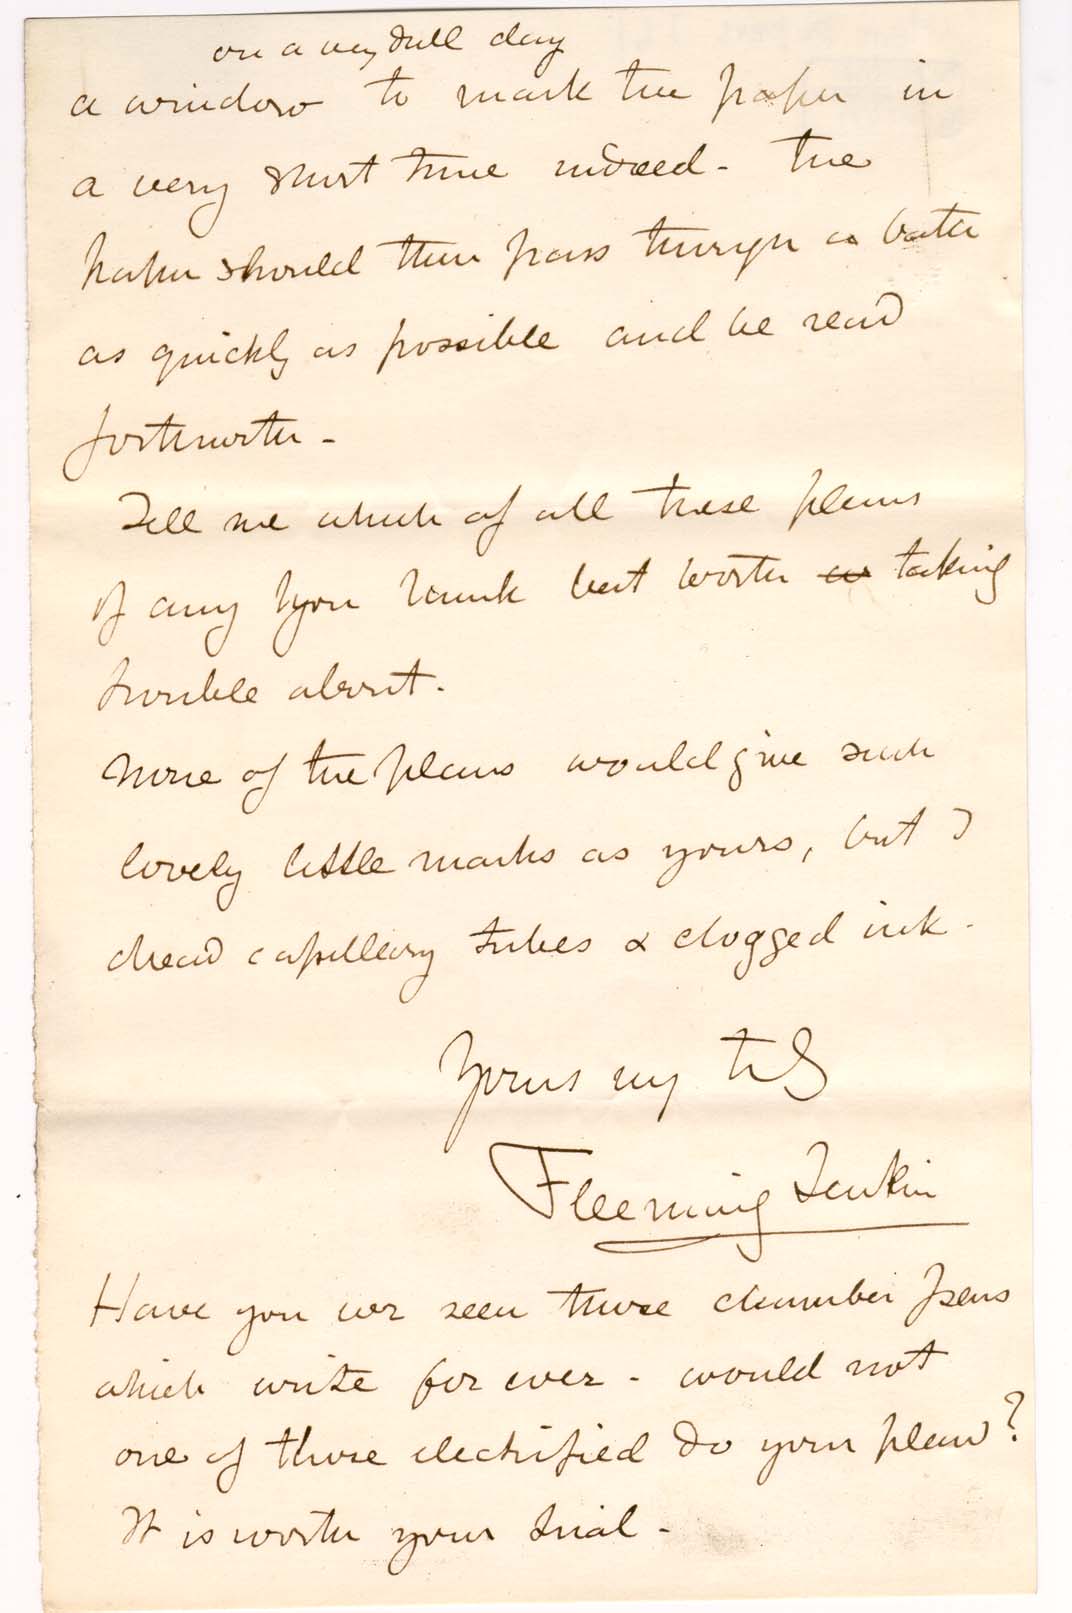 on a very dull day
a window to mark the paper in
a very short time indeed - The
paper should then pass through a bath
as quickly as possible and be read
forthwith -
Tell me which of all these plans
if any you think best worth taking
trouble about.
None of the plans would give such
lovely little marks as yours, but I
dread capillary tubes & clogged ink -
Yours my
Fleeming Jenkin
Have you ever seen those chamber pens
which write for ever - would not
one of those electrified do your plan?
It is worth your trial -